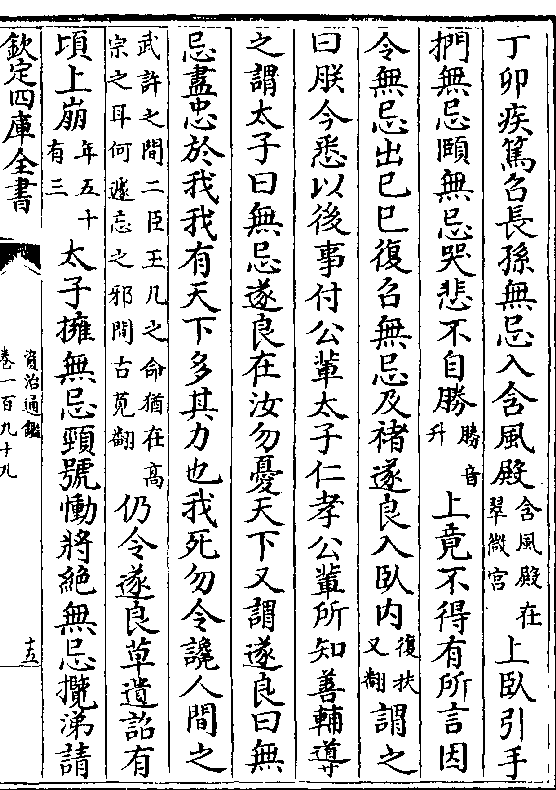 丁卯疾篤召長孫無忌入含風殿含風殿在翠微宫上臥引手
捫無忌頤無忌哭悲不自勝勝音升上竟不得有所言因
令無忌出己巳復召無忌及禇遂良入臥内復扶又翻謂之
曰朕今悉以後事付公輩太子仁孝公輩所知善輔導
之謂太子曰無忌遂良在汝勿憂天下又謂遂良曰無
忌盡忠於我我有天下多其力也我死勿令讒人間之
武許之間二臣玉几之命猶在高宗之耳何遽忘之邪間古莧翻仍令遂良草遺詔有
頃上崩年五十有三太子擁無忌頸號慟將絶無忌攬涕請
欽定四庫全書
資治通鑑
卷一百九十九
十五